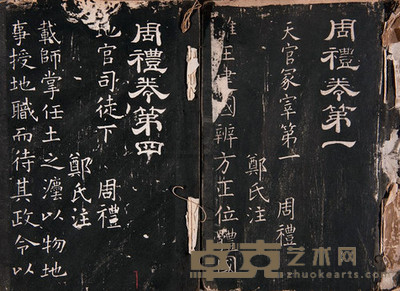 周禮卷第一
天官冢宰第一　周禮
鄭氏注
惟王建國辨方正位體國
周禮卷第四
地官司徒下　周禮
鄭氏注
載師掌任土之灋以物地
事授地職而待其政令以
点克艺术网
zhuokearts.com